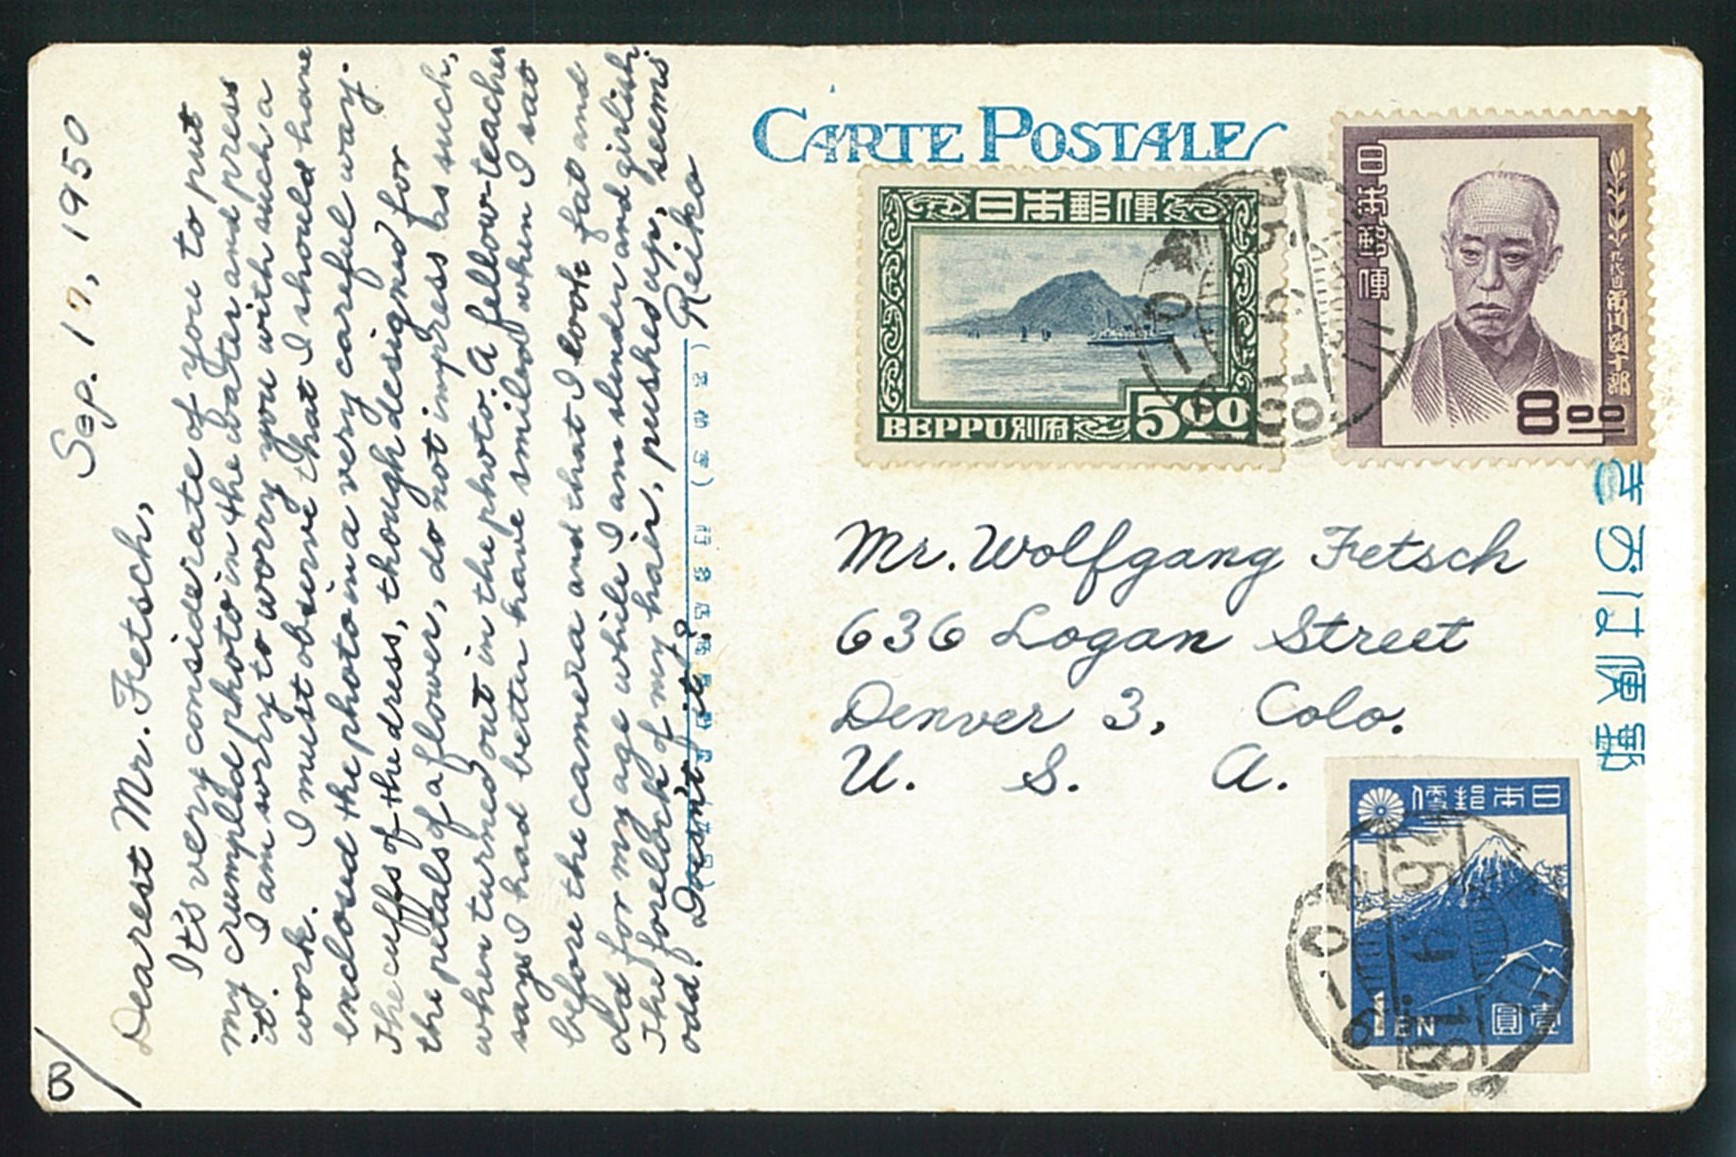 Sep. 17, 1950
Dearest Mr. Fetsch,
It's very considerate of you to put
my crumpled photo in the water and press
it. I am sorry to worry you with such a
work. I must observe that I should have
enclosed the photo in a very careful way.
The cuffs of the dress, though designed for
the petals of a flower, do not impress as such,
when turned out in the photo. A fellow-teacher
says I had better have smiled when I sat
before the camera and that I look fat and
old for my age while I am slender and girlish.
The forelock of my hair, pushed up, seems
odd. Doesn't it?
Reiko
B/
CARTE POSTALE
日本郵便
BEPPU 別府
5.00
日本郵便
市川団十郎
8.00
きがは便郵
Mr. Wolfgang Fetsch
636 Logan Street
Denver 3, Colo.
U. S. A.
便郵本日
1 EN 圓壹